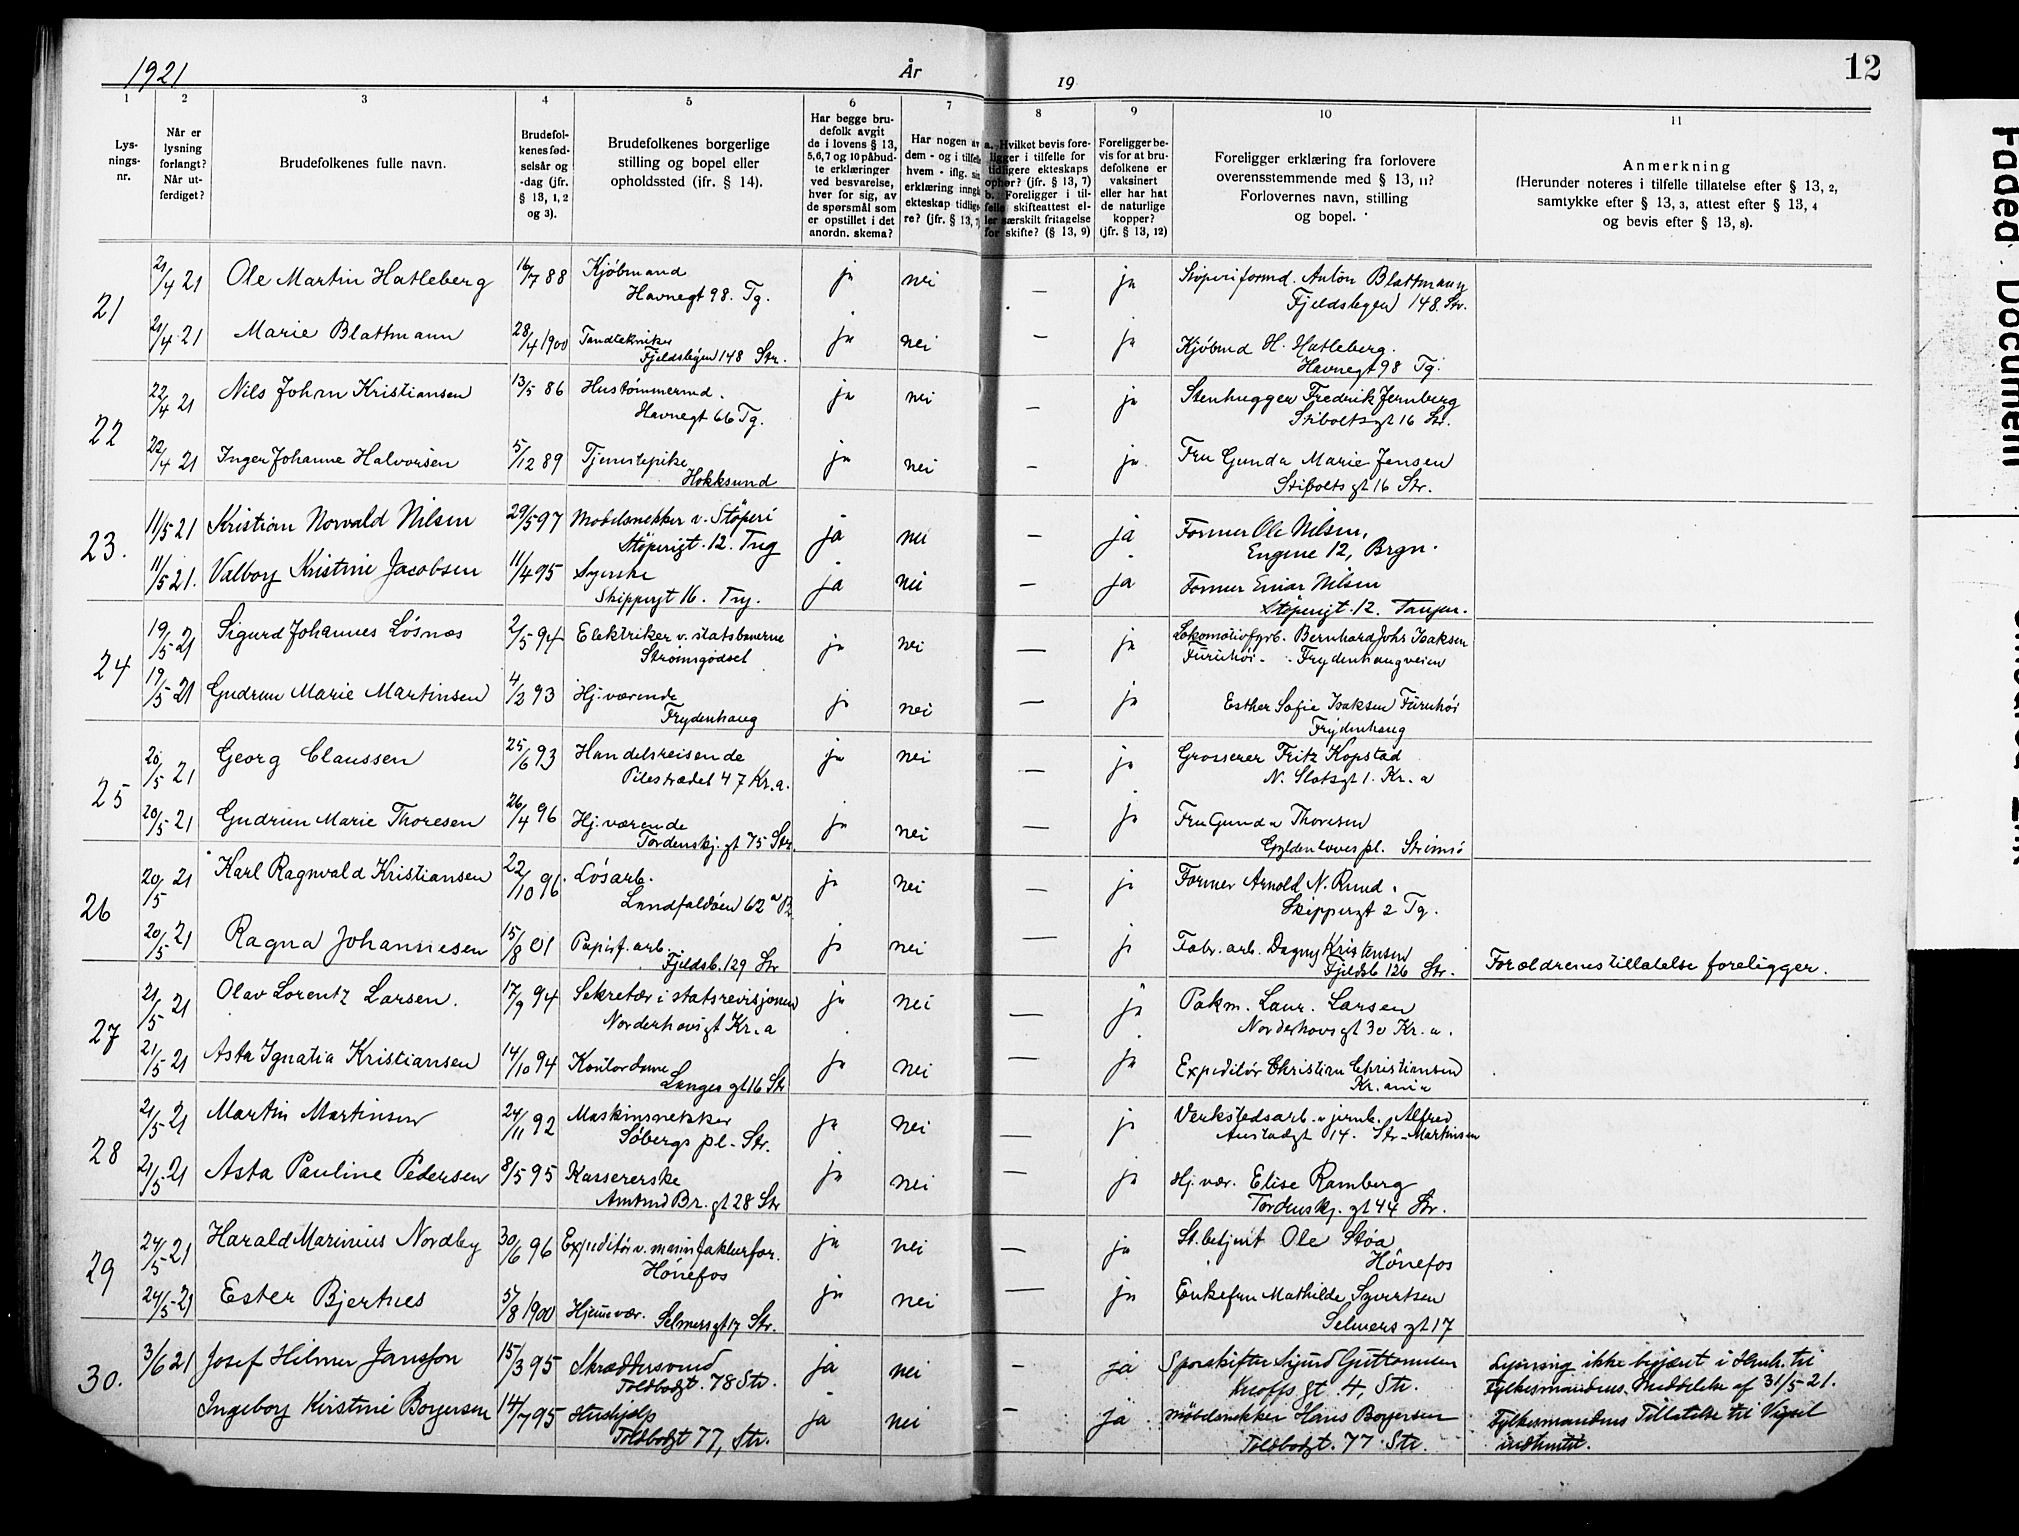 1921
År
19
12
1
2
3
4
5
6
7
8
9
10
11
Lys-
nings-
nr.
Når er
lysning
forlangt?
Når ut-
ferdiget?
Brudefolkenes fulle navn.
Brudefol-
kenes fød-
selsår og
-dag (jfr.
§ 13, 1, 2
og 3).
Brudefolkenes borgerlige
stilling og bopel eller
opholdssted (ifr. § 14).
Har begge bru-
defolk avgit
de i lovens § 13,
5,6,7 og 10 påbud-
te erklæringer
ved besvarelse,
hver for sig, av
de spørsmål som
er opstillet i det
anordn. skema?
Har nogen av
dem - og i tilfelle
hvem - iflg. sin
erklæring inngått
ekteskap tidlige-
re? (jfr. § 13, 7)
a. Hvilket bevis fore-
ligger i tilfelle for
tidligere ekteskaps
ophør? (jfr. § 13, 7)
b. Foreligger i til-
felle skifteattest el-
ler særskilt fritagelse
for skifte? (§ 13, 9)
Foreligger be-
vis for at bru-
defolkene er
vaksinert
eller har hat
de naturlige
kopper?
(jfr. § 13, 12)
Foreligger erklæring fra forlovere
overensstemmende med § 13, 11?
Forlovernes navn, stilling
og bopel.
Anmerkning
(Herunder noteres i tilfelle tillatelse efter § 13, 2,
samtykke efter § 13, 3, attest efter § 13, 4
og bevis efter § 13, 8).
21
21/4 21 Ole Martin Hatleberg 16/7 88 Kjøbmand ja nei — ja Støperiformd. Anton Blattmann
Havnegt 98. Tg. Fjeldsbyen 148. Str.
21/4 21 Marie Blattmann 28/4 1900 Tandtekniker ja nei — ja Kjøbmd H. Hatleberg.
Fjeldsbyen 148 Str. Havnegt 98 Tg.
22
22/4 21 Nils Johan Kristiansen 13/5 86 Hustømmermd. ja nei — ja Stenhugger Fredrik Jernberg
Havnegt 66 Tg. Stiboltsgt 16 Str.
22/4 21 Inger Johanne Halvorsen 5/12 89 Tjenestepike ja nei — ja Fru Gunda Marie Jensen
Hokksund Stibolts gt 16 Str.
23.
11/5 21 Kristian Norvald Nilsen 29/5 97 Modelsnekker v. Støperi ja nei — ja Former Ole Nilsen,
Støperigt. 12. Tng Engene 12, Brgn.
11/5 21. Valborg Kristine Jacobsen 11/4 95 Syerske ja nei — ja Former Einar Nilsen
Skippergt 16. Tng. Støperigt. 12. Tangen.
24
19/5 21 Sigurd Johannes Løsnæs 2/5 94 Elektriker v. statsbanerne ja nei — ja Lokomotivfyrb. Bernhard Johs Isaksen
Strømsgodset Furuhøi - Frydenhaugveien
19/5 21 Gudrun Marie Martinsen 4/2 93 Hj. værende ja nei — ja Esther Sofie Isaksen Furuhøi
Frydenhaug Frydenhaug
25
20/5 21 Georg Claussen 25/6 93 Handelsreisende ja nei — ja Grosserer Fritz Kopstad
Pilestrædet 47 Kr.a. N. Slotsgt 1. Kr. a
20/5 21 Gudrun Marie Thoresen 26/4 96 Hj. værende ja nei — ja Fru Gunda Thoresen
Tordenskj. gt 75 Str. Gyldenløves pl. Strømsø
26
20/5 21 Karl Ragnvald Kristiansen 22/10 96 Løsarb. ja nei — ja Former Arnold N. Ruud.
Landfaldøen 62 a Br. Skippergt 2 Tg.
20/5 21 Ragna Johannesen 15/8 01 Papirf. arb. ja nei — ja Fabr. arb. Dagny Kristensen
Fjeldsb. 129 Str Fjeldsb 126 Str. Forældrenes tillatelse foreligger.
27
21/5 21 Olav Lorentz Larsen. 17/9 94 Sekretær i statsrevisjonen ja nei — ja Pakm. Laur. Larsen
Norderhovsgt Kr.a Norderhovsgt 30 Kr. a.
21/5 21 Asta Ignatia Kristiansen 14/10 94 Kontordame ja nei — ja Expeditør Christian Christiansen
Langes gt 16 Str Kr.ania
28
21/5 21 Martin Martinsen 24/11 92 Maskinsnekker ja nei — ja Verkstedsarb. v jernb. Alfred
Søbergs pl. - Str. Austadgt 14. Str - Martinsen
21/5 21 Asta Pauline Pedersen 8/5 95 Kassererske ja nei — ja Hj. vær. Elise Ramberg
Amtmd Br. gt 28 Str Tordenskj. gt 44 Str.
29
24/5 21 Harald Marinius Nordby 30/6 96 Expeditør v. manufakturfor. ja nei — ja St. betjent Ole Støa
Hønefos Hønefos
24/5 21 Ester Bjertnes 5/8 1900 Hjemmevær. ja nei — ja Enkefru Mathilde Syvertsen
Selmersgt 17 Str. Selmers gt 17
30.
3/6 21 Josef Hilmer Jansson 15/3 95 Skræddersvend ja nei — ja Sporskifter Sigurd Guttormsen Lysning ikke begjæret i Henh. til
Toldbodgt. 78 Str. Knoffs gt. 4, Str. Fylkesmandens Meddelelse af 31/5-21.
Ingeborg Kirstine Borgersen 14/7 95 Hushjelp ja nei — ja Møbelsnekker Hans Borgersen Fylkesmandens Tillatelse til Vigsel
Toldbodgt 77, Str. Toldbodgt. 77 Str. indhentet.
Faded Document